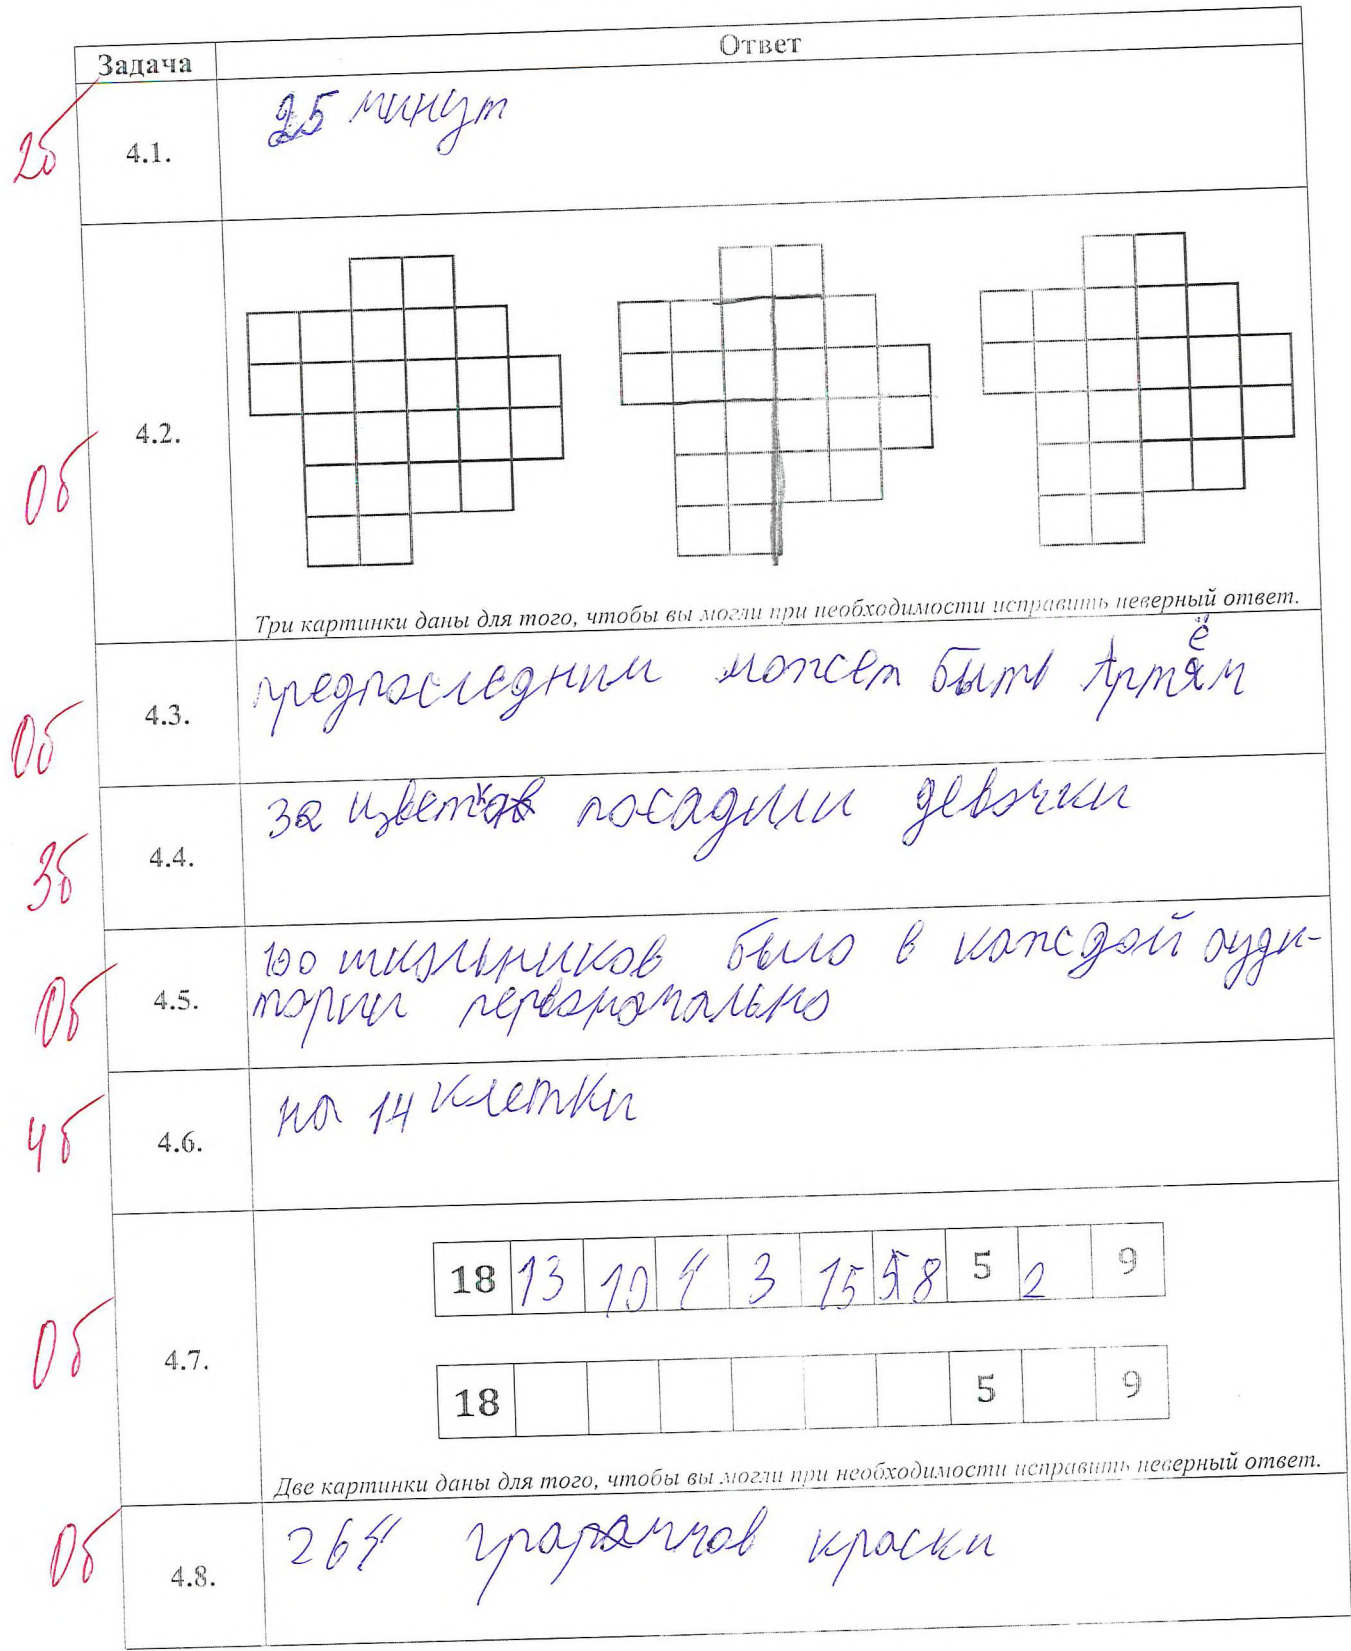 Задача Ответ
2б 4.1. 25 минут
0б 4.2.
Три картинки даны для того, чтобы вы могли при необходимости исправить неверный ответ.
0б 4.3. предпоследним может быть Артём
3б 4.4. 32 цветка посадили девочки
0б 4.5. 100 школьников было в каждой ауди-
тории первоначально
4б 4.6. на 14 клетки
0б 4.7.
18 13 10 4 3 15 8 5 2 9
18 5 9
Две картинки даны для того, чтобы вы могли при необходимости исправить неверный ответ.
0б 4.8. 264 краски